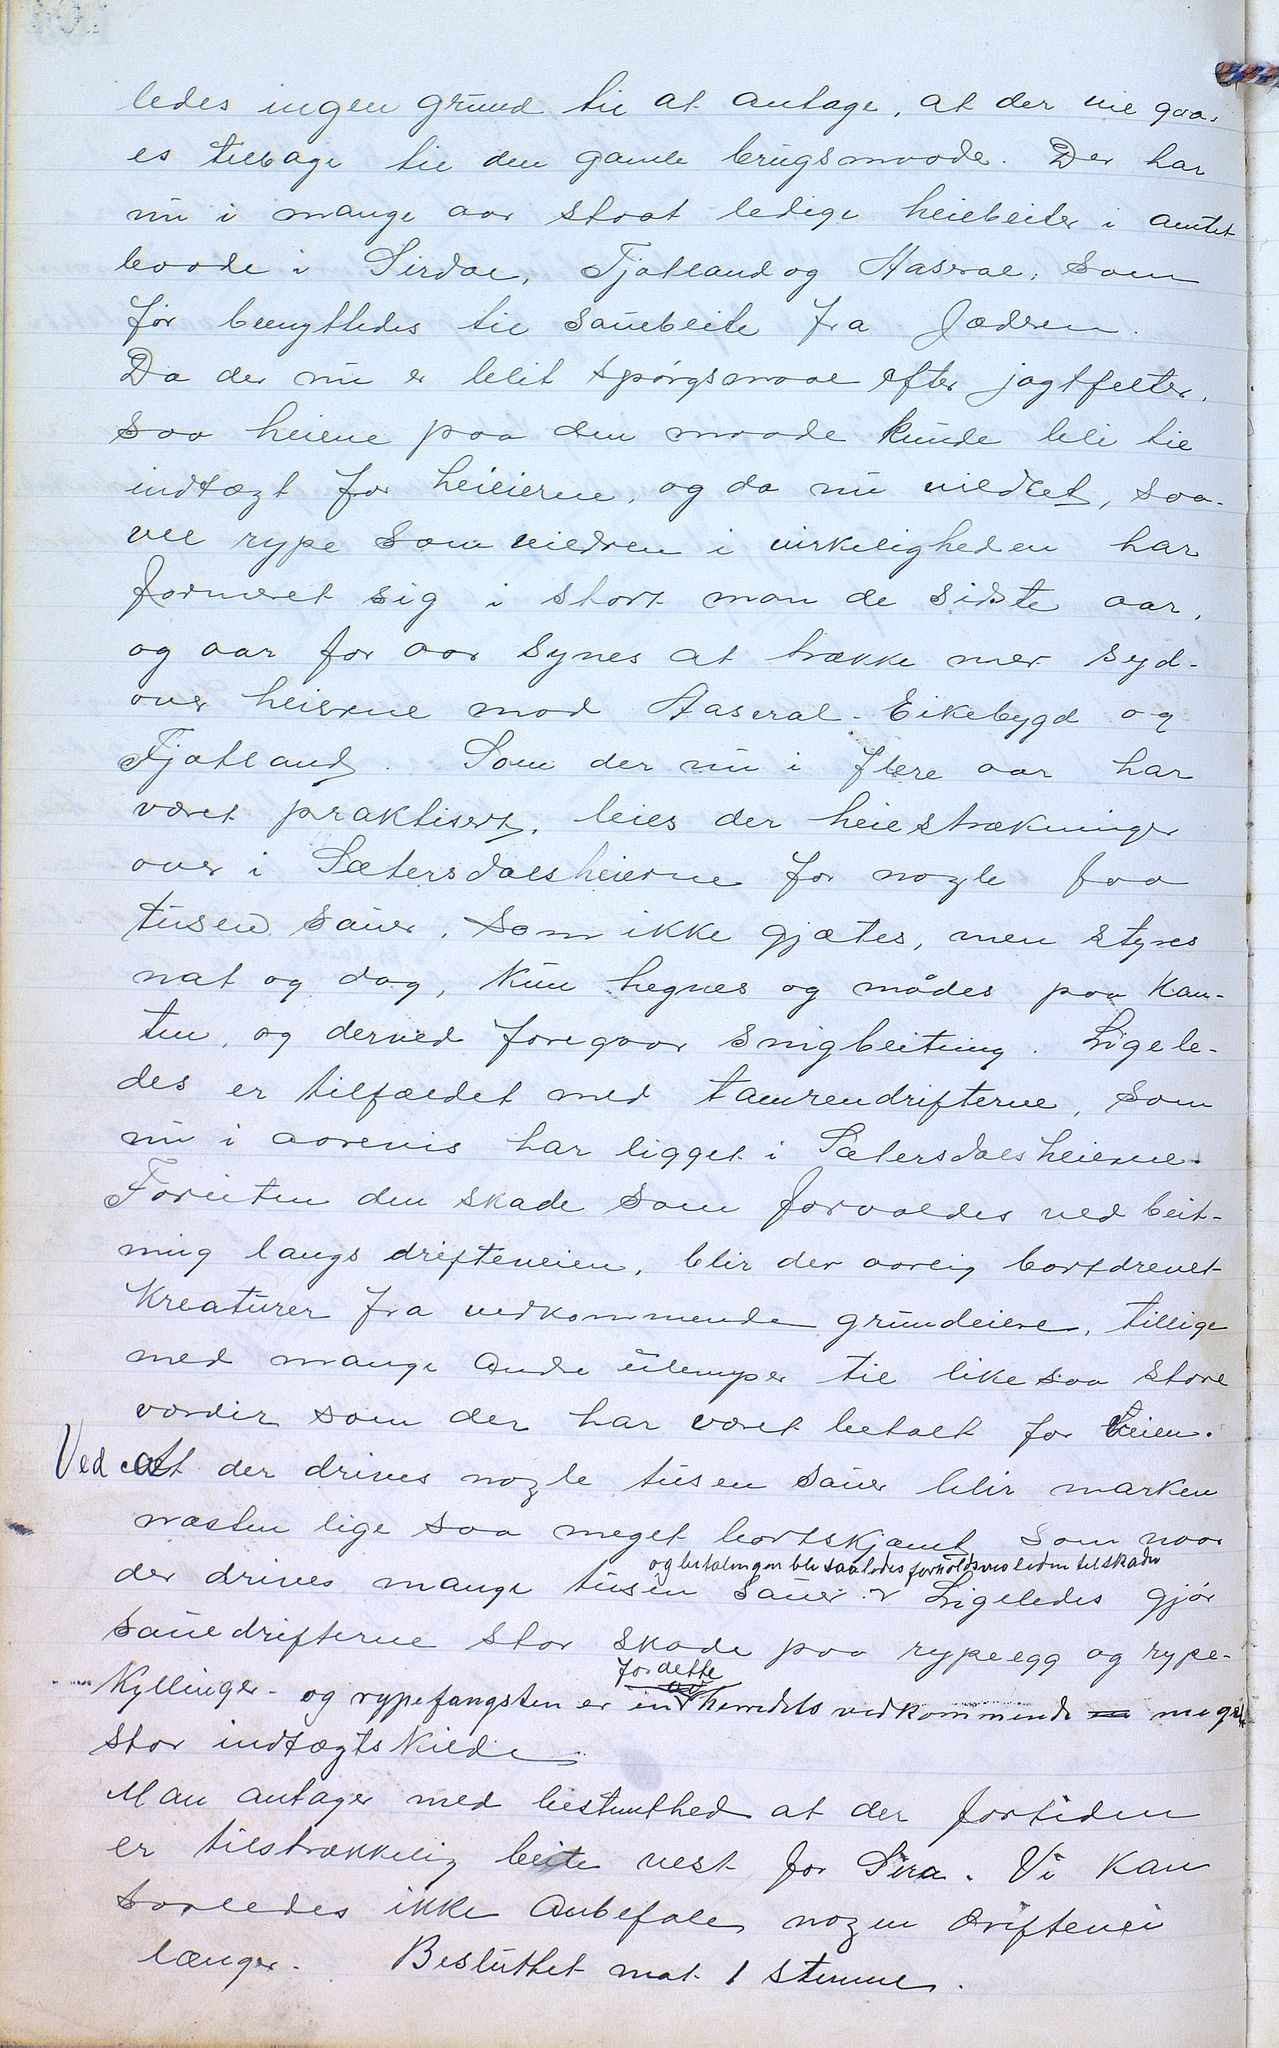 ledes ingen grund til at antage, at der vil gaa-
es tilbage til den gamle brugsmaade. Der har
nu i mange aar staat ledige heiebeiter i amtet
baade i Sirdal, Fjotland og Aaseral, som
før benyttedes til sauebeite fra Jæderen.
Da der nu er blit spørgsmaal efter jagtfelter,
saa heiene paa den maade kunde bli til
indtægt for heieierne, og da nu vildtet, saa-
vel rype som vildren i virkeligheden har
formeret sig i stort mon de sidste aar,
og aar for aar synes at trække mer syd-
over heierne mod Aaseral - Eikebygd og
Fjotland. Som der nu i flere aar har
været praktisert, leies der heiestrækninger
over i Sætersdalsheierne for nogle faa
tusen sauer, som ikke gjætes, men styres
nat og dag, kun hegnes og mødes paa kan-
ten, og derved foregaar snigbeitning. Ligele-
des er tilfældet med tamrendrifterne, som
nu i aarevis har ligget i Sætersdalsheierne.
Foruten den skade som forvoldes ved beit-
ning langs drifteveien, blir der aarlig bortdrevet
kreaturer fra vedkommende grundeiere, tillige
med mange andre ulemper til likesaa store
værdier som der har været betalt for leien.
Ved at der drives nogle tusen sauer blir marken
næsten lige saa meget bortskjæmt som naar
og betalingen bli saaledes forholdsvis liden til skaden
der drives mange tusen sauer. Ligeledes gjør
sauedrifterne stor skade paa rypeegg og rype-
for dette
kyllinger - og rypefangsten er herredets vedkommende meget
stor indtægtskilde.
Man antager med bestemthed at der fortiden
er tilstrækkelig beite vest for Sira. Vi kan
saaledes ikke anbefale nogen driftevei
længer. Besluttet mot 1 stemme.